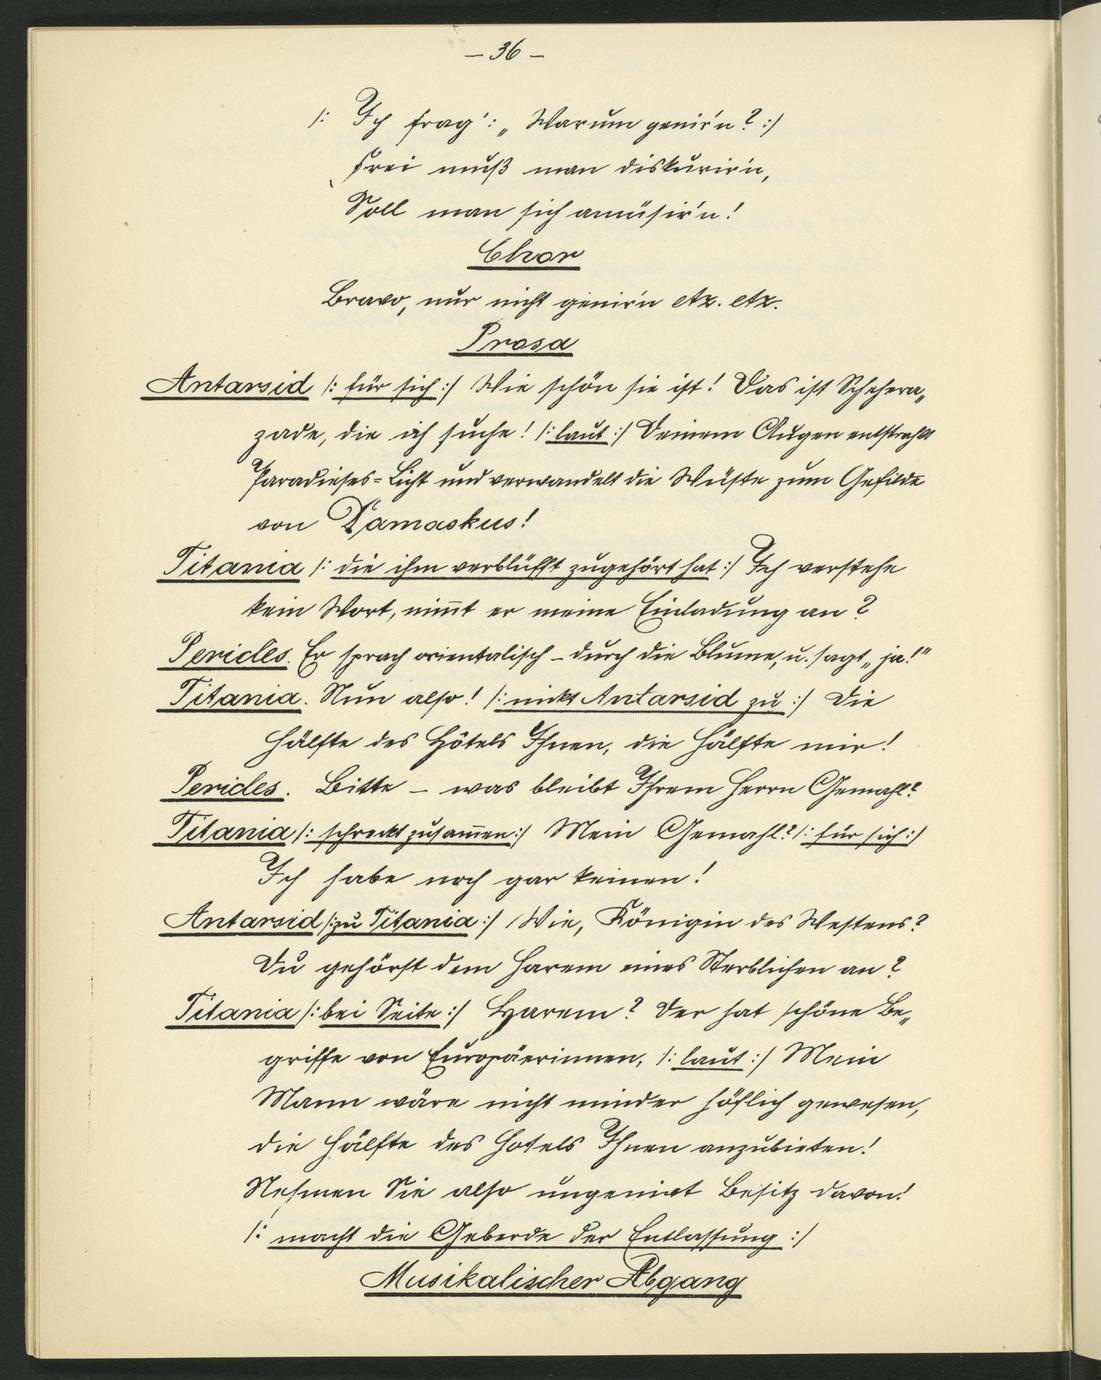 – 36 –
/: Ich frag': „Warum genir'n? :/
Frei muß man diskurir'n,
Soll man sich amüsir'n!
Chor
Bravo, nur nicht genir'n etz. etz.
Prosa
Antarsid /: für sich :/ Wie schön sie ist! Das ist Schehera„
zade, die ich suche! /: laut :/ Deinem Augen entstrahlt
Paradieses=Licht und verwandelt die Wüste zum Gefilde
von Damaskus!
Titania /: die ihm verblüfft zugehört hat :/ Ich verstehe
kein Wort, nim̅t er meine Einladung an?
Pericles. Er sprach orientalisch – durch die Blume, u. sagt „ja!"
Titania. Nun also! /: nickt Antarsid zu :/ Die
Hälfte des Hôtels Ihnen, die Hälfte mir!
Pericles. Bitte – was bleibt Ihrem Herrn Gemahl?
Titania /: schrickt zusam̅en :/ Mein Gemahl? /: für sich :/
Ich habe noch gar keinen!
Antarsid /: zu Titania :/ Wie, Königin des Westens?
Du gehörst dem Harem eines Sterblichen an?
Titania /: bei Seite :/ Harem? Der hat schöne Be„
griffe von Europäerinnen, /: laut :/ Mein
Mann wäre nicht minder höflich gewesen,
die Hälfte des Hotels Ihnen anzubieten!
Nehmen Sie also ungenirt Besitz davon!
/: macht die Geberde der Entlassung :/
Musikalischer Abgang